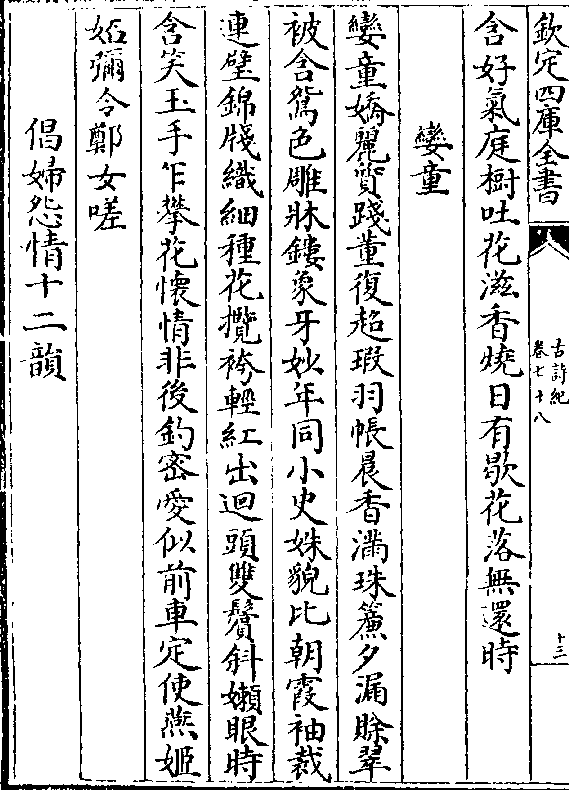 欽定四庫全書
古詩紀
卷七十八
十三
含好氣庭樹吐花滋香燒日有歇花落無還時
孌童
孌童嬌麗質踐董復超瑕羽帳晨香滿珠簾夕漏賒翠
被含鴛色雕牀鏤象牙妙年同小史姝貌比朝霞袖裁
連璧錦牋織細種花攬袴輕紅出迴頭雙鬢斜嬾眼時
含笑玉手乍攀花懷情非後釣密愛似前車定使燕姬
妬彌令鄭女嗟
倡婦怨情十二韻